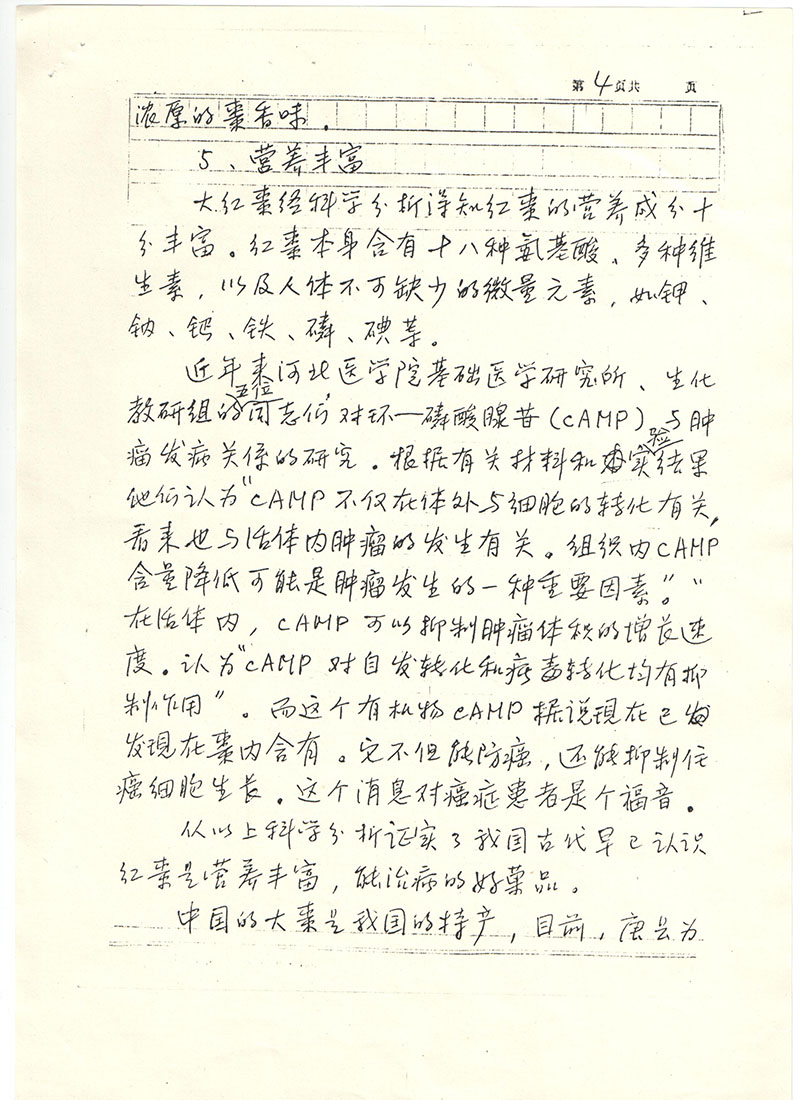 第4页共 页
浓厚的棗香味.
5、营养丰富
大红棗经科学分析得知红棗的营养成分十
分丰富。红棗本身含有十八种氨基酸、多种维
生素，以及人体不可缺少的微量元素，如钾、
钠、钙、铁、磷、碘等。
近年来河北医学院基础医学研究所、生化
教研组的五位同志们对环一磷酸腺苷(CAMP)与肿
瘤发病关係的研究.根据有关材料和实验结果
他们认为"CAMP不仅在体外与细胞的转化有关,
看来也与活体内肿瘤的发生有关。组织内CAMP
含量降低可能是肿瘤发生的一种重要因素。""
在活体内,CAMP可以抑制肿瘤体积的增长速
度.认为"CAMP对自发转化和病毒转化均有抑
制作用"。而这个有机物CAMP据说现在已
发现在棗内含有。它不但能防癌,还能抑制住
癌细胞生长.这个消息对癌症患者是个福音.
从以上科学分析证实了我国古代早已认识
红棗是营养丰富,能治病的好菓品。
中国的大棗是我国的特产,目前,唐县为